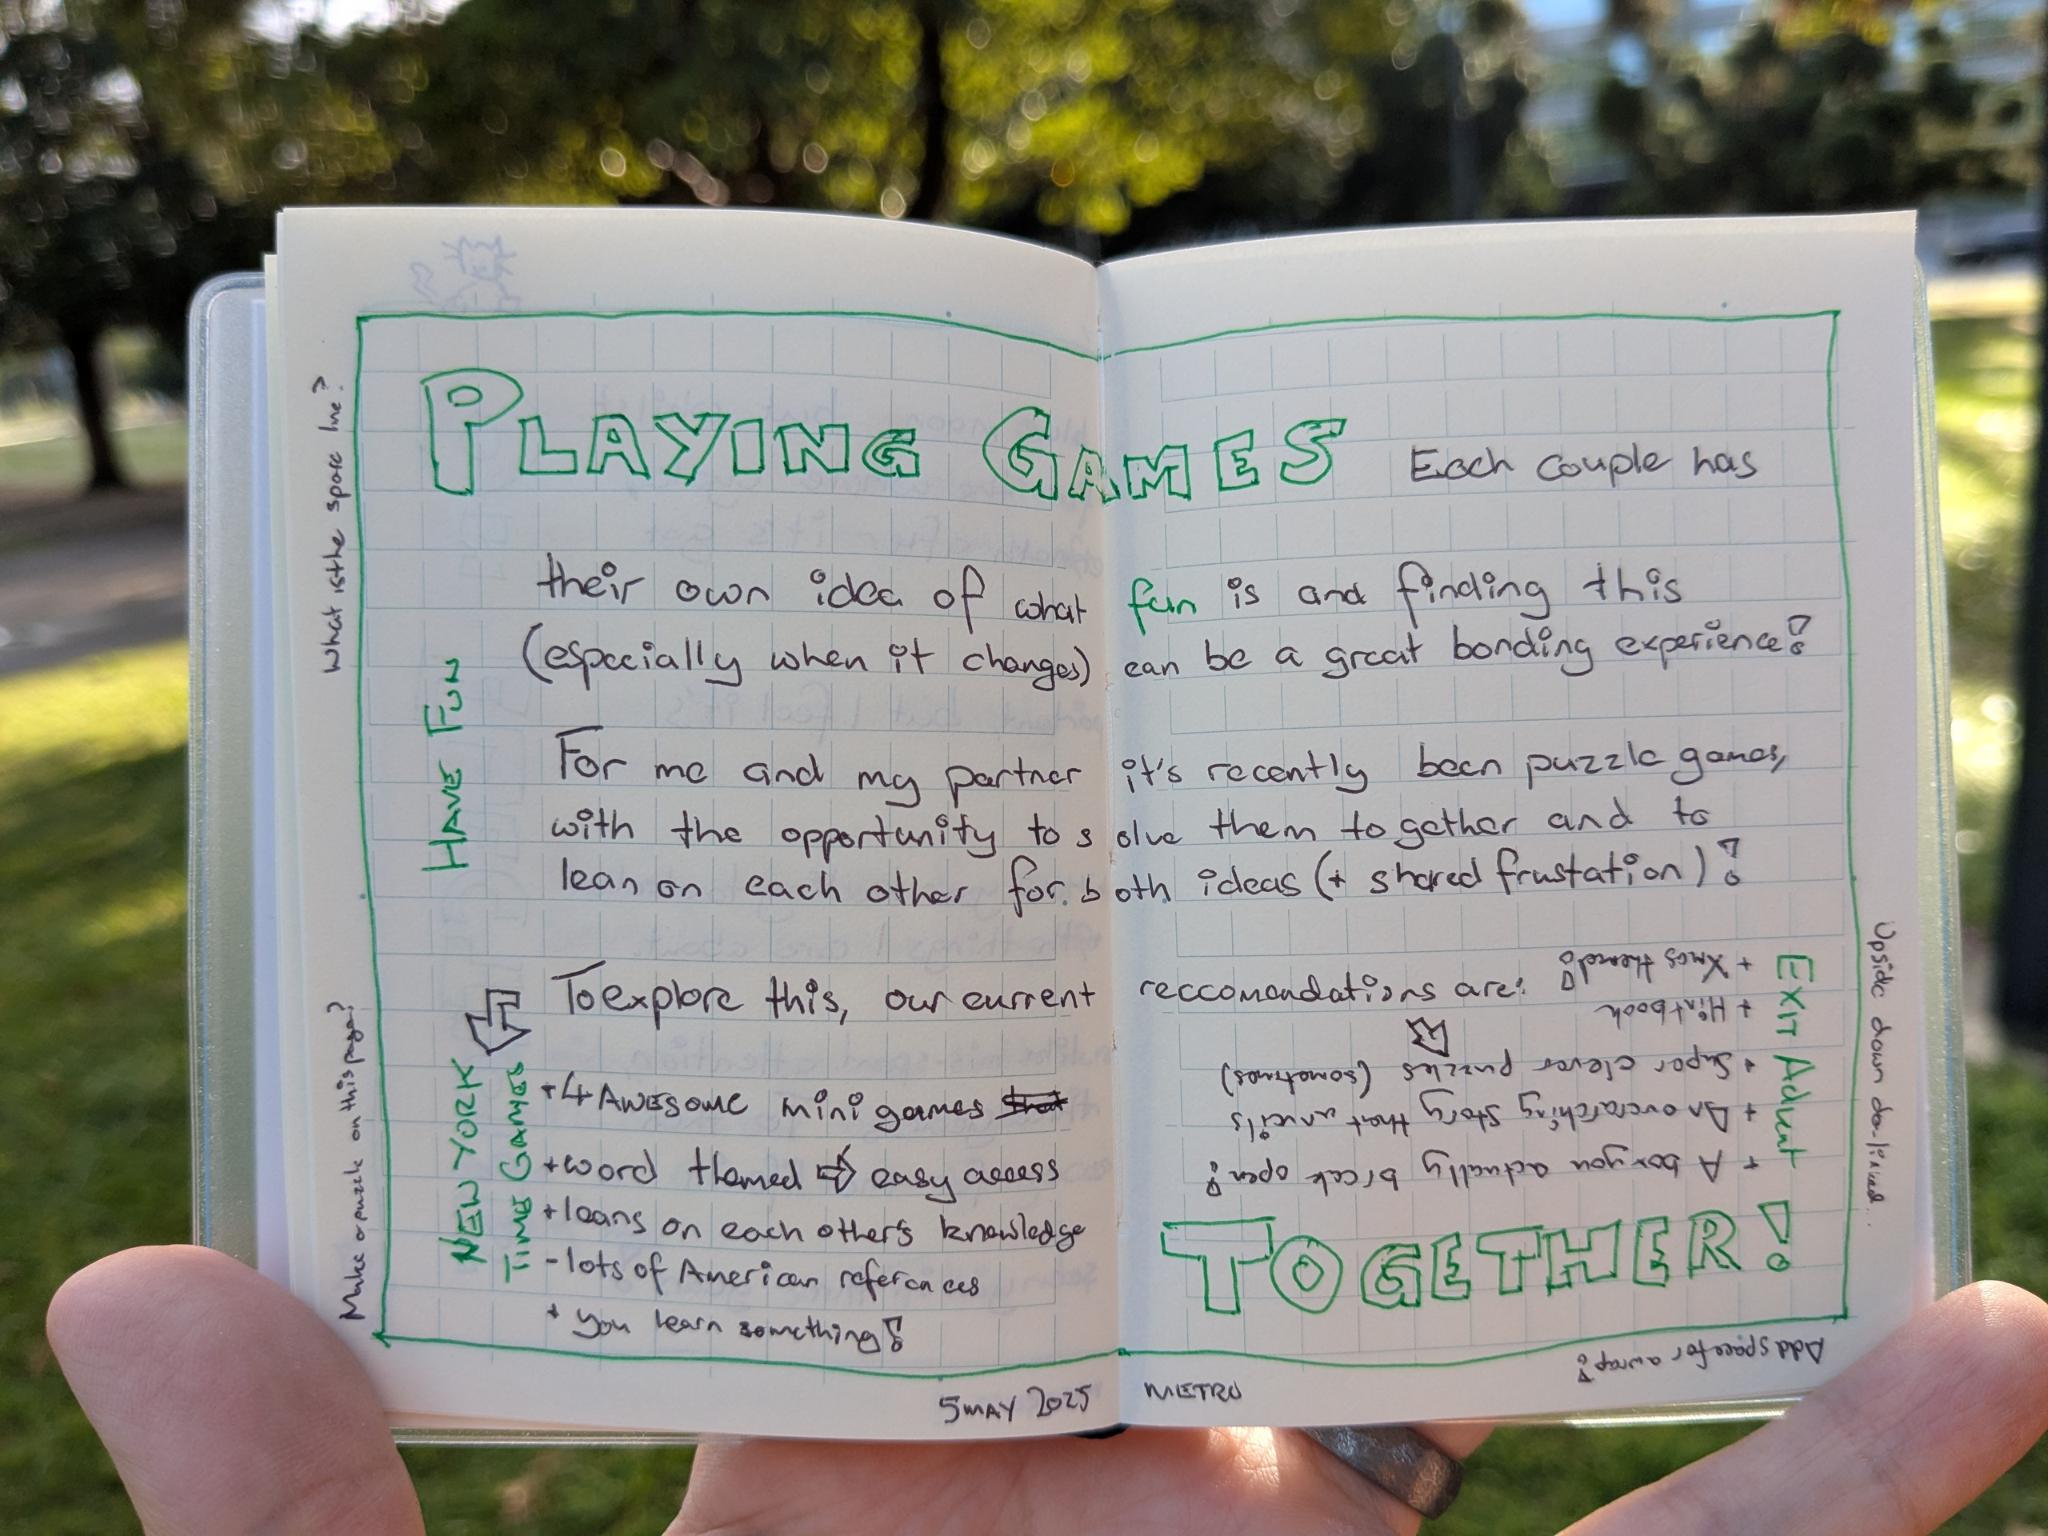 PLAYING GAMES Each couple has
their own idea of what fun is and finding this
(especially when it changes) can be a great bonding experience!
For me and my partner it's recently been puzzle games,
with the opportunity to solve them together and to
lean on each other for both ideas (+ shared frustation)!
To explore this, our current reccomendations are:
HAVE FUN
NEW YORK
TIMES GAMES
+4 Awesome mini games
+word themed ⇒ easy access
+leans on each other's knowledge
-lots of American references
+ you learn something!
EXIT Advent
+ A box you actually break open!
+ An overarching story that unveils
+ Super clever puzzles (sometimes)
+ Hintbook
+ Xmas themed!
TOGETHER!
What is the spare line?
Make a puzzle on this page?
Upside down
Add space for a wrap!
5 MAY 2025
METRO